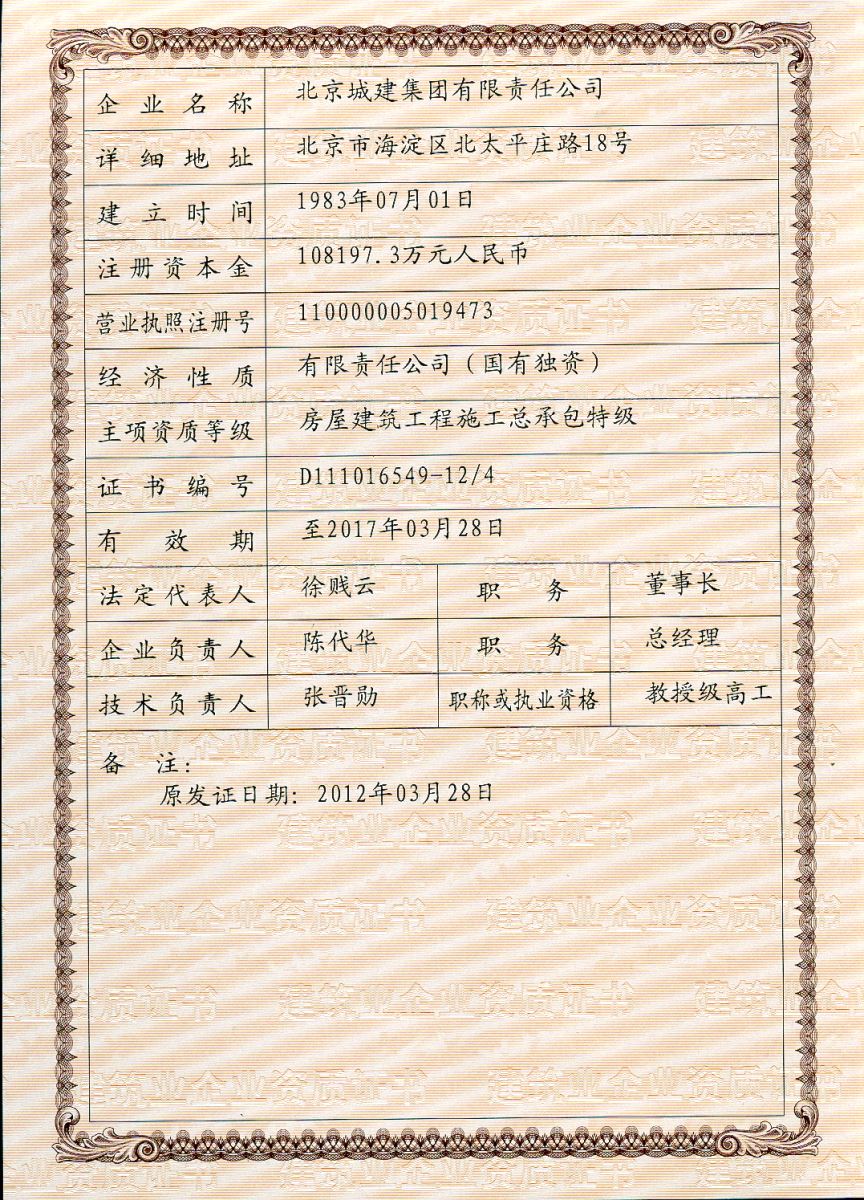 企业名称 北京城建集团有限责任公司
详细地址 北京市海淀区北太平庄路18号
建立时间 1983年07月01日
注册资本金 108197.3万元人民币
营业执照注册号 110000005019473
经济性质 有限责任公司（国有独资）
主项资质等级 房屋建筑工程施工总承包特级
证书编号 D111016549-12/4
有效期 至2017年03月28日
法定代表人 徐贱云 职务 董事长
企业负责人 陈代华 职务 总经理
技术负责人 张晋勋 职称或执业资格 教授级高工
备注：
原发证日期：2012年03月28日
建筑业企业资质证书